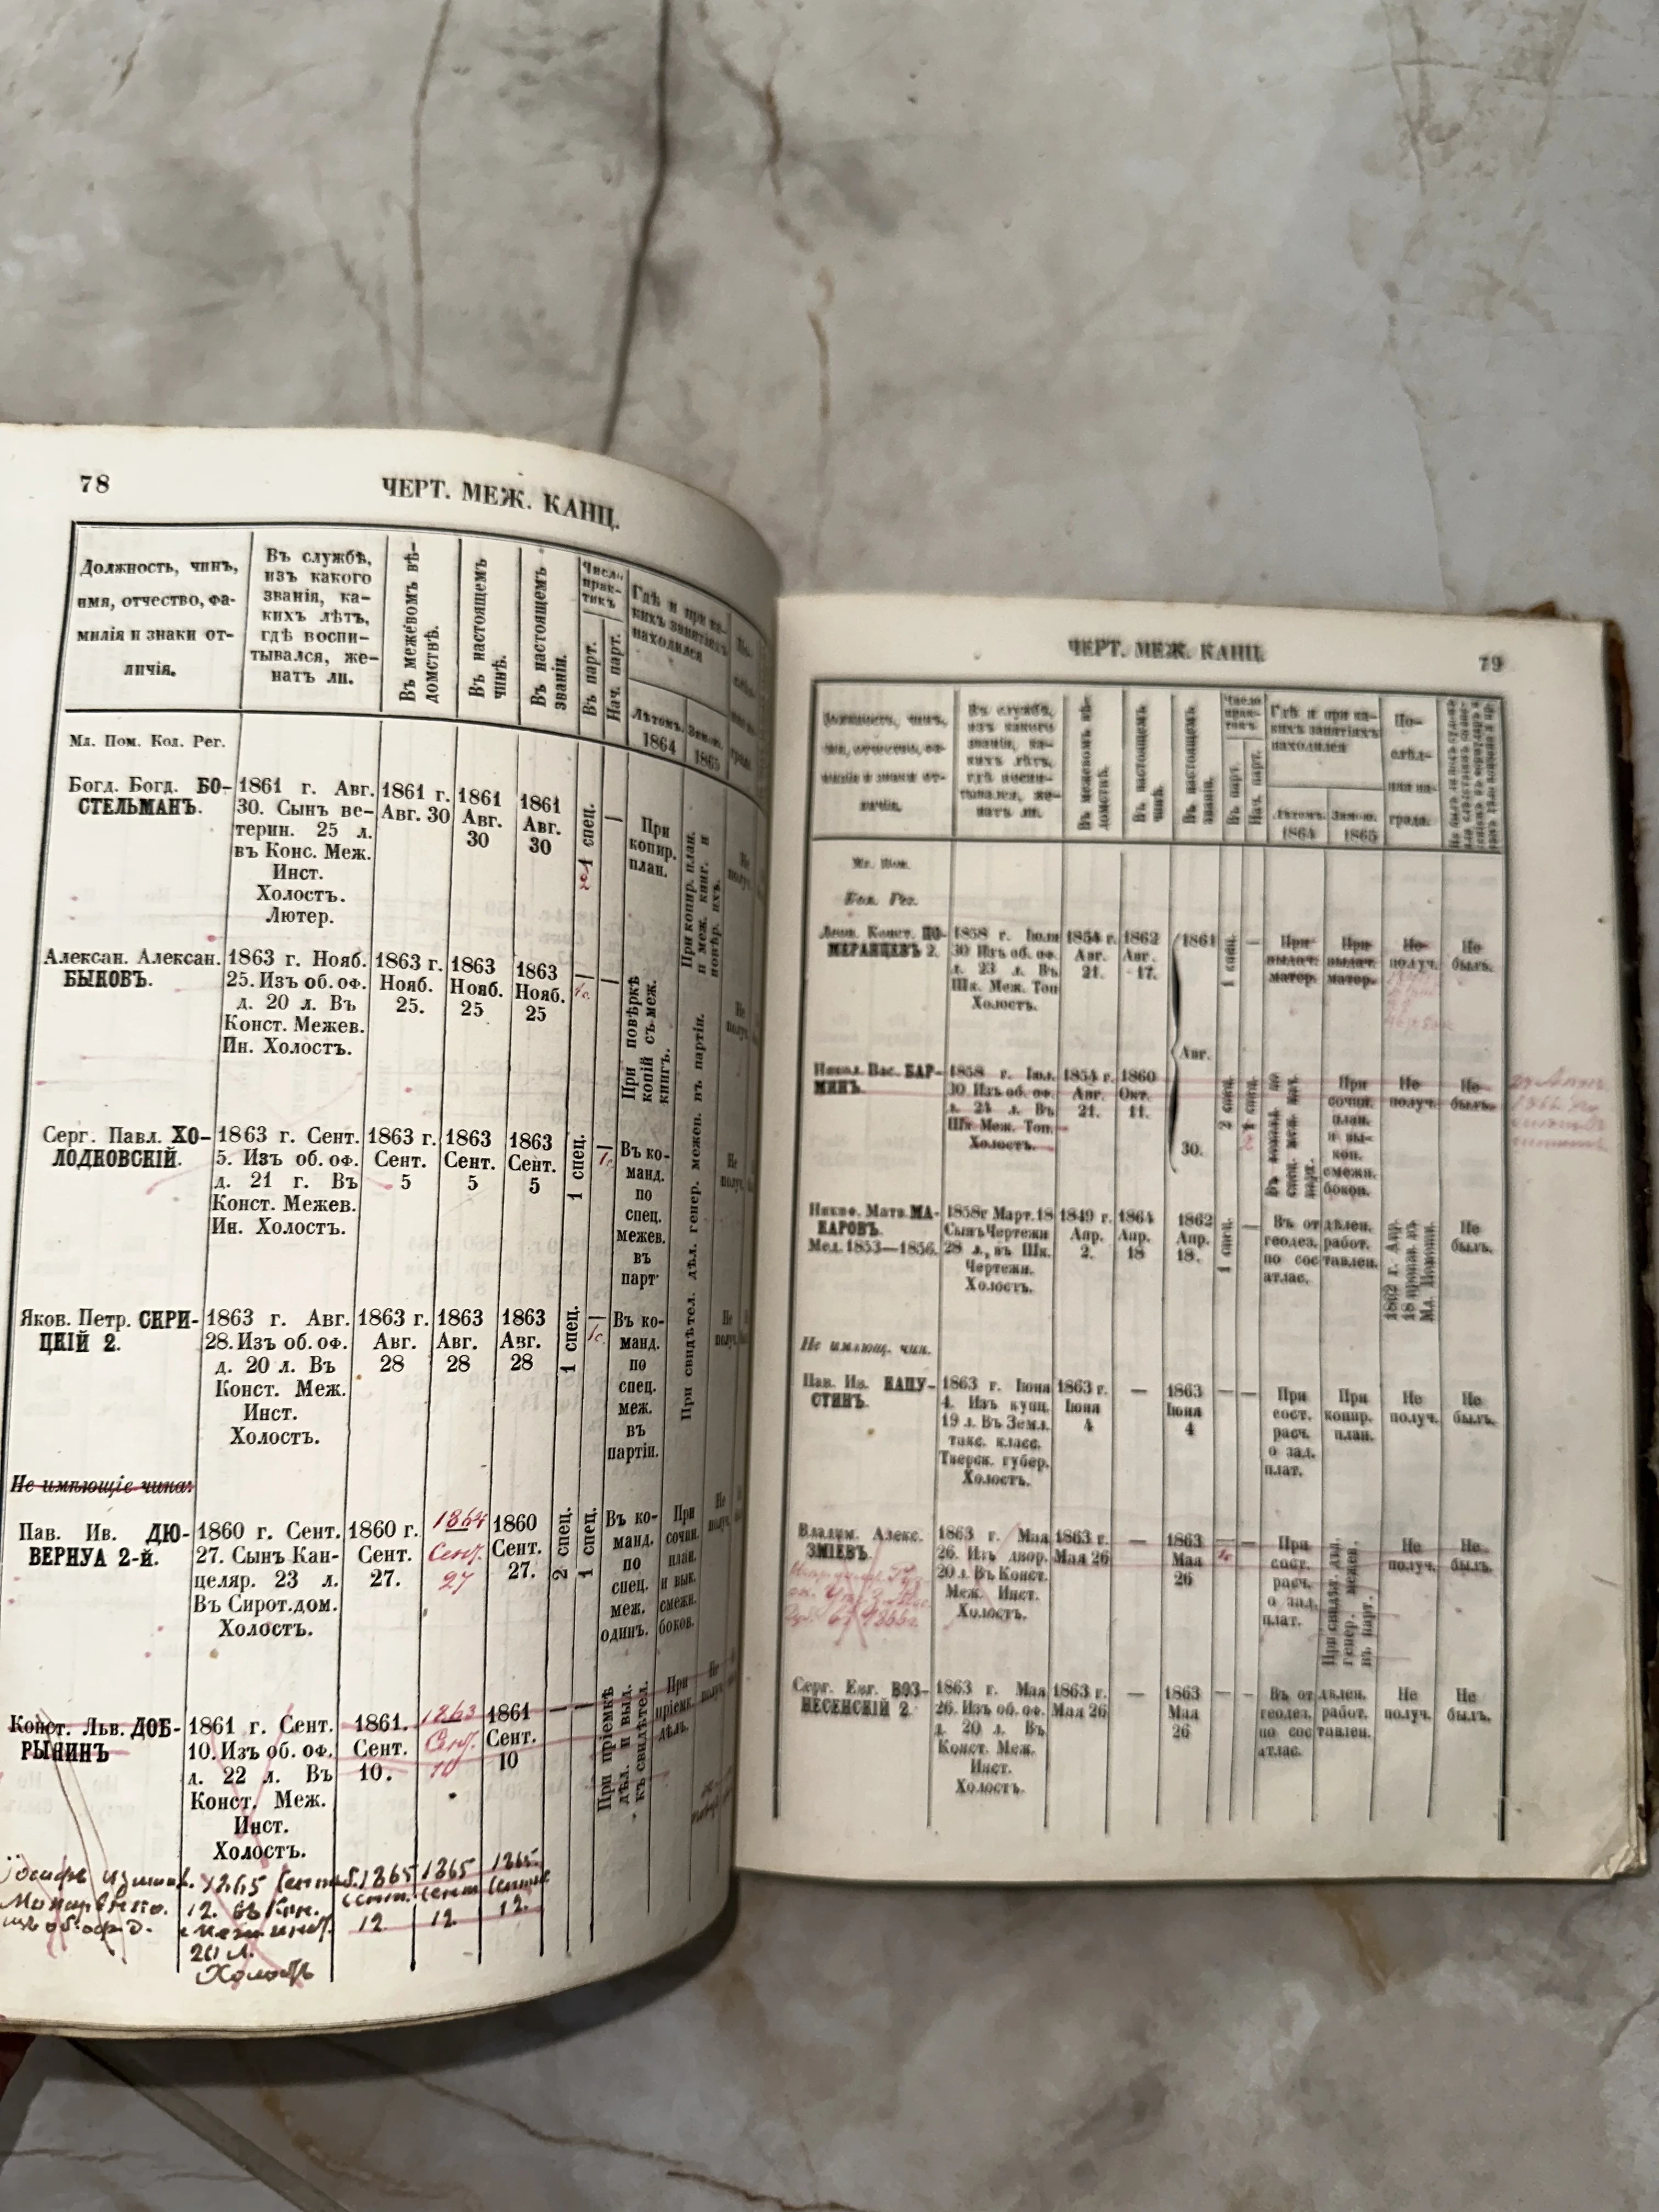 78
ЧЕРТ. МЕЖ. КАНЦ.
Должность, чинъ,
имя, отчество, фа-
милія и знаки от-
личія.
Въ службѣ,
изъ какого
званія, ка-
кихъ лѣтъ,
гдѣ воспи-
тывался, же-
натъ ли.
Въ межевомъ вѣ-
домствѣ.
Въ настоящемъ
чинѣ.
Въ настоящемъ
званіи.
Число
прак-
тикъ
Въ парт.
Нач. парт.
Гдѣ и при ка-
кихъ занятіяхъ
находился
Лѣтомъ.
1864
Зимою.
1865
Мл. Пом. Кол. Рег.
Богд. Богд. БО-
СТЕЛЬМАНЪ.
1861 г. Авг.
30. Сынъ ве-
терин. 25 л.
въ Конс. Меж.
Инст.
Холостъ.
Лютер.
1861 г.
Авг. 30
1861
Авг.
30
1861
Авг.
30
1 спец.
—
При
копир.
план.
При копир. план.
и меж. книг. и
повѣр. ихъ.
Не
получ.
Алексан. Алексан.
БЫКОВЪ.
1863 г. Нояб.
25. Изъ об. оф.
д. 20 л. Въ
Конст. Межев.
Ин. Холостъ.
1863 г.
Нояб.
25.
1863
Нояб.
25
1863
Нояб.
25
—
1с.
—
При повѣркѣ
копій съ меж.
книгъ.
При свидѣтел. дѣл. генер. межев. въ партіи.
Серг. Павл. ХО-
ЛОДКОВСКІЙ.
1863 г. Сент.
5. Изъ об. оф.
д. 21 г. Въ
Конст. Межев.
Ин. Холостъ.
1863 г.
Сент.
5
1863
Сент.
5
1863
Сент.
5
1 спец.
—
1с
Въ ко-
манд.
по
спец.
межев.
въ
парт
Яков. Петр. СКРИ-
ЦКІЙ 2.
1863 г. Авг.
28. Изъ об. оф.
д. 20 л. Въ
Конст. Меж.
Инст.
Холостъ.
1863 г.
Авг.
28
1863
Авг.
28
1863
Авг.
28
1 спец.
—
1с.
Въ ко-
манд.
по
спец.
меж.
въ
партіи.
Не имѣющіе чина:
Пав. Ив. ДЮ-
ВЕРНУА 2-й.
1860 г. Сент.
27. Сынъ Кан-
целяр. 23 л.
Въ Сирот.дом.
Холостъ.
1860 г.
Сент.
27.
1864
Сент.
27
1860
Сент.
27.
2 спец.
1 спец.
Въ ко-
манд.
по
спец.
меж.
одинъ.
При
сочин.
план.
и вык.
смежн.
боков.
Не
получ.
Конст. Льв. ДОБ-
РЫНИНЪ
1861 г. Сент.
10. Изъ об. оф.
д. 22 л. Въ
Конст. Меж.
Инст.
Холостъ.
1861.
Сент.
10.
1863
Сент.
10
1861
Сент.
10
—
—
При пріемкѣ
дѣл. и выд.
къ свидѣтел.
При
пріемк.
дѣлъ.
Не
получ.
1865
12.
20 л.
Холостъ
1865
Сент.
12
1865
Сент.
12
1865
Сент.
12.
ЧЕРТ. МЕЖ. КАНЦ.
79
Должность, чинъ,
имя, отчество, фа-
милія и знаки от-
личія.
Въ службѣ,
изъ какого
званія, ка-
кихъ лѣтъ,
гдѣ воспи-
тывался, же-
натъ ли.
Въ межевомъ вѣ-
домствѣ.
Въ настоящемъ
чинѣ.
Въ настоящемъ
званіи.
Число
прак-
тикъ
Въ парт.
Нач. парт.
Гдѣ и при ка-
кихъ занятіяхъ
находился
Лѣтомъ.
1864
Зимою.
1865
По-
слѣд-
няя на-
града.
Мл. Пом.
Кол. Рег.
Леон. Конст. ПО-
МЕРАНЦЕВЪ 2.
1858 г. Іюля
30 Изъ об. оф.
д. 23 л. Въ
Шк. Меж. Топ
Холостъ.
1854 г.
Авг.
21.
1862
Авг.
17.
1861
Авг.
30.
1 спец.
—
При
выдач.
матер.
При
выдач.
матер.
Не
получ.
Не
былъ.
Никол. Вас. БАР-
МИНЪ.
1858 г. Іюл.
30. Изъ об. оф.
д. 24 л. Въ
Шк Меж. Топ.
Холостъ.
1854 г.
Авг.
21.
1860
Окт.
11.
2 спец.
1 спец.
2
При
сочин.
план.
и вы-
коп.
смежн.
боков.
Не
получ.
Не
былъ.
Никиф. Матв. МА-
КАРОВЪ.
Мед. 1853—1856.
1858г Март.18
Сынъ Чертежн
28 л., въ Шк.
Чертежн.
Холостъ.
1849 г.
Апр.
2.
1864
Апр.
18
1862
Апр.
18.
1 спец.
—
Въ отдѣлен.
геодез. работ.
по составлен.
атлас.
1862 г. Апр.
18 произв. въ
Мл. Помощн.
Не
былъ.
Не имѣющ. чин.
Пав. Ив. КАПУ-
СТИНЪ.
1863 г. Іюня
4. Изъ купц.
19 л. Въ Земл.
такс. класс.
Тверск. губер.
Холостъ.
1863 г.
Іюня
4
—
1863
Іюня
4
—
—
При
сост.
расч.
о зад.
плат.
При
копир.
план.
Не
получ.
Не
былъ.
Владим. Алекс.
ЗМІЕВЪ.
1863 г. Мая
26. Изъ двор.
20 л. Въ Конст.
Меж. Инст.
Холостъ.
1863 г.
Мая 26
—
1863
Мая
26
—
1с
—
При
сост.
расч.
о зад.
плат.
При свидѣт. дѣл.
генер. межев.
въ парт.
Не
получ.
Не
былъ.
Серг. Евг. ВОЗ-
НЕСЕНСКІЙ 2.
1863 г. Мая
26. Изъ об. оф.
д. 20 л. Въ
Конст. Меж.
Инст.
Холостъ.
1863 г.
Мая 26
—
1863
Мая
26
—
—
Въ отдѣлен.
геодез. работ.
по составлен.
атлас.
Не
получ.
Не
былъ.